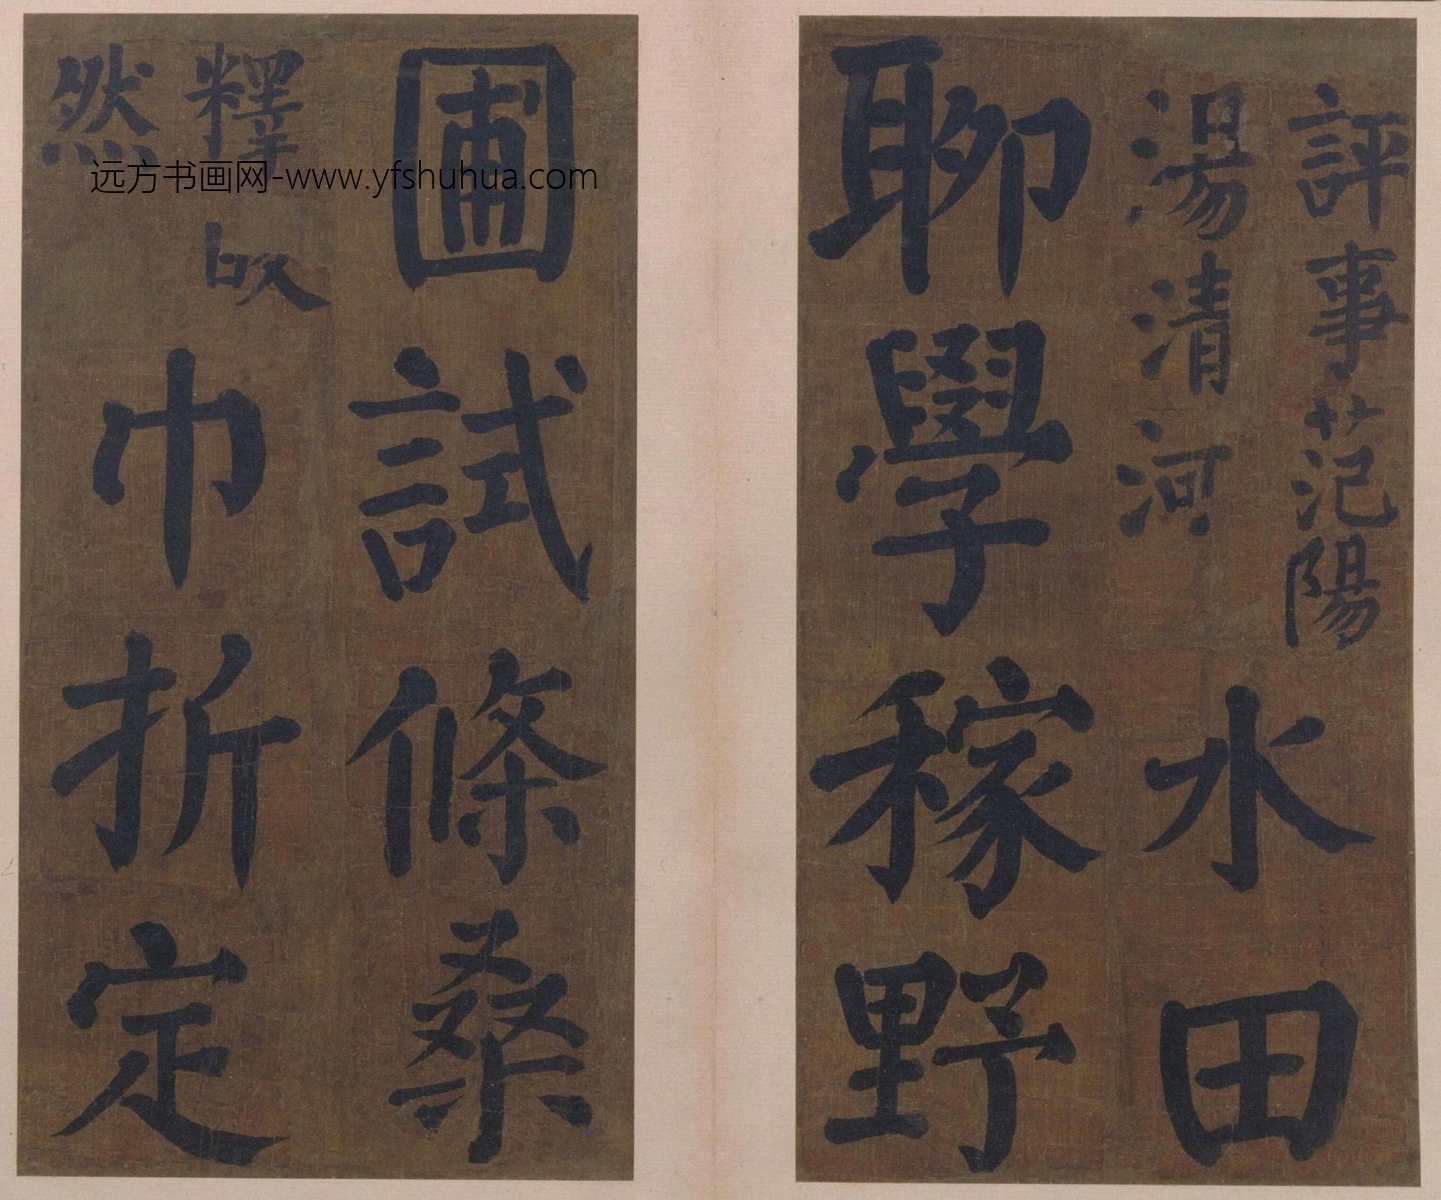 評事范陽
湯清河
水田
聊學稼野
圃試條桑
釋皎
然
巾折定
远方书画网-www.yfshuhua.com